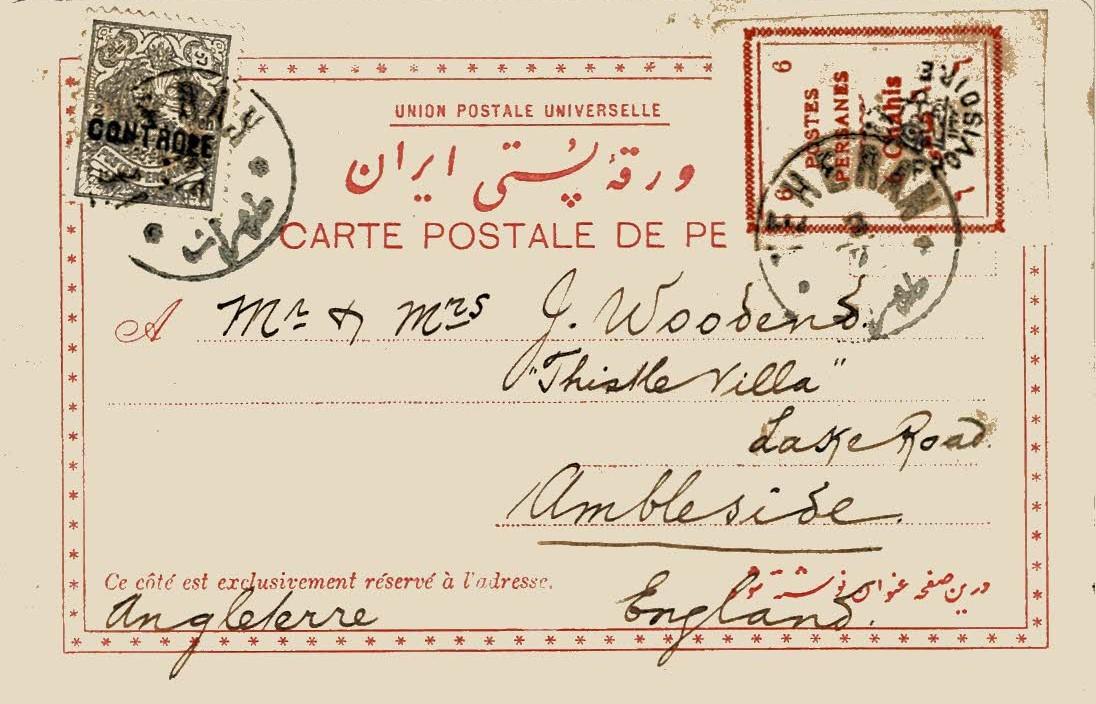 CONTROLE
UNION POSTALE UNIVERSELLE
ورقهٔ پُستی ایران
CARTE POSTALE DE PE
6
POSTES
PERSANES
Chahis
6
PROVISOIRE
TEHERAN
طهران
طهران
A Mr & Mrs J. Woodend.
"Thistle Villa"
Lake Road.
Ambleside.
Ce côté est exclusivement réservé à l'adresse.
درین صفحه عنوان نوشته شود
Angleterre England.